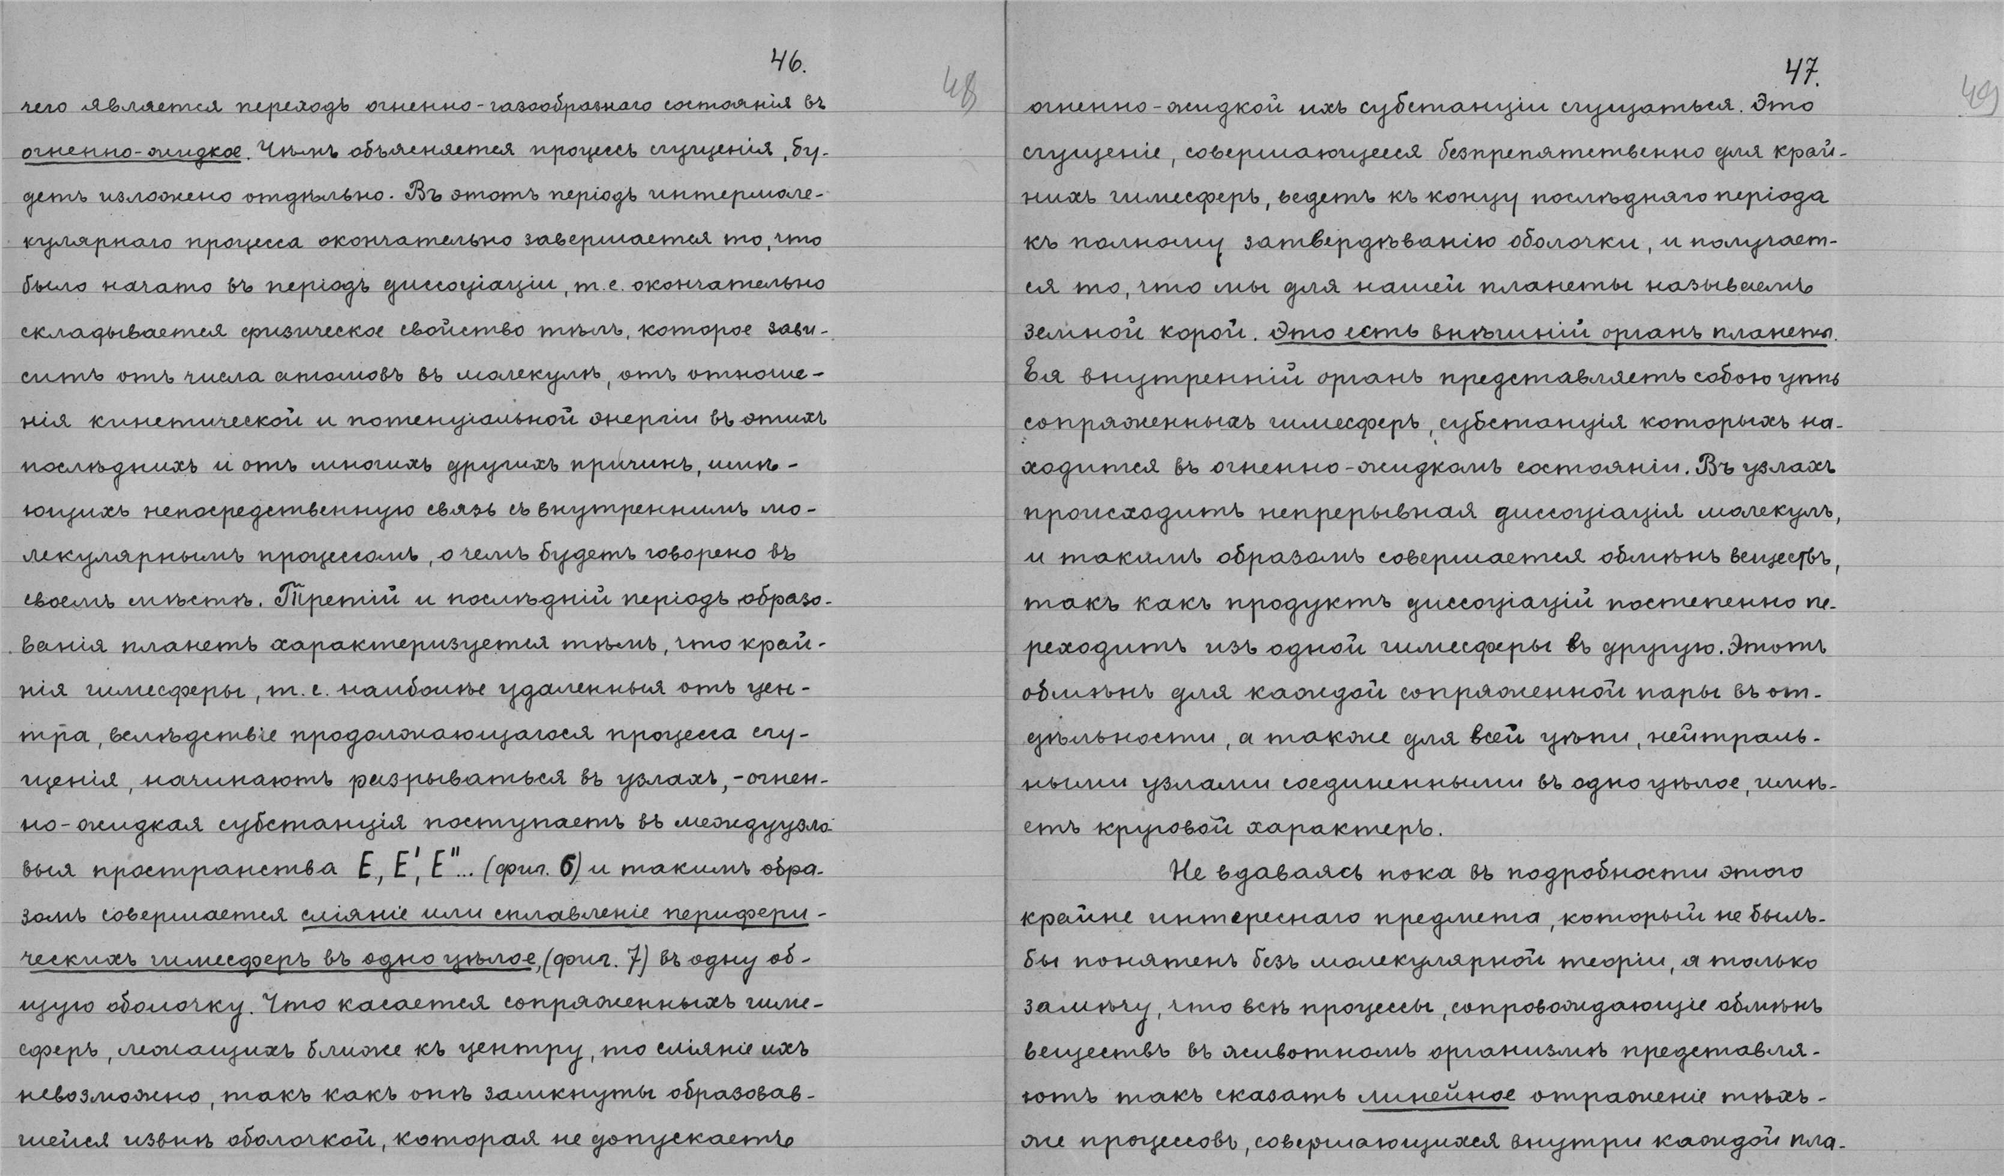 46.
48
чего является переходъ огненно-газообразнаго состоянія въ
огненно-жидкое. Чѣмъ объясняется процессъ сгущенія, бу-
детъ изложено отдѣльно. Въ этотъ періодъ интермоле-
кулярнаго процесса окончательно завершается то, что
было начато въ періодъ диссоціаціи, т.е. окончательно
складывается физическое свойство тѣлъ, которое зави-
ситъ отъ числа атомовъ въ молекулѣ, отъ отноше-
нія кинетической и потенціальной энергіи въ этихъ
послѣднихъ и отъ многихъ другихъ причинъ, имѣ-
ющихъ непосредственную связь съ внутреннимъ мо-
лекулярнымъ процессомъ, о чемъ будетъ говорено въ
своемъ мѣстѣ. Третій и послѣдній періодъ образо-
ванія планетъ характеризуется тѣмъ, что край-
нія гимесферы, т.е. наиболѣе удаленныя отъ цен-
тра, вслѣдствіе продолжающагося процесса сгу-
щенія, начинаютъ разрываться въ узлахъ, - огнен-
но-жидкая субстанція поступаетъ въ междуузло-
выя пространства E, E', E''... (фиг. 6) и такимъ обра-
зомъ совершается сліяніе или сплавленіе перифери-
ческихъ гимесферъ въ одно цѣлое, (фиг. 7) въ одну об-
щую оболочку. Что касается сопряженныхъ гиме-
сферъ, лежащихъ ближе къ центру, то сліяніе ихъ
невозможно, такъ какъ онѣ замкнуты образовав-
шейся извнѣ оболочкой, которая не допускаетъ
47.
49
огненно-жидкой ихъ субстанціи сгущаться. Это
сгущеніе, совершающееся безпрепятственно для край-
нихъ гимесферъ, ведетъ къ концу послѣдняго періода
къ полному затвердѣванію оболочки, и получает-
ся то, что мы для нашей планеты называемъ
земной корой. Это есть внѣшній органъ планеты.
Ея внутренній органъ представляетъ собою цѣпь
сопряженныхъ гимесферъ, субстанція которыхъ на-
ходится въ огненно-жидкомъ состояніи. Въ узлахъ
происходитъ непрерывная диссоціація молекулъ,
и такимъ образомъ совершается обмѣнъ веществъ,
такъ какъ продуктъ диссоціацій постепенно пе-
реходитъ изъ одной гимесферы въ другую. Этотъ
обмѣнъ для каждой сопряженной пары въ от-
дѣльности, а также для всей цѣпи, нейтраль-
ными узлами соединенными въ одно цѣлое, имѣ-
етъ круговой характеръ.
Не вдаваясь пока въ подробности этого
крайне интереснаго предмета, который не былъ-
бы понятенъ безъ молекулярной теоріи, я только
замѣчу, что всѣ процессы, сопровождающіе обмѣнъ
веществъ въ животномъ организмѣ представля-
ютъ такъ сказать линейное отраженіе тѣхъ-
же процессовъ, совершающихся внутри каждой пла-